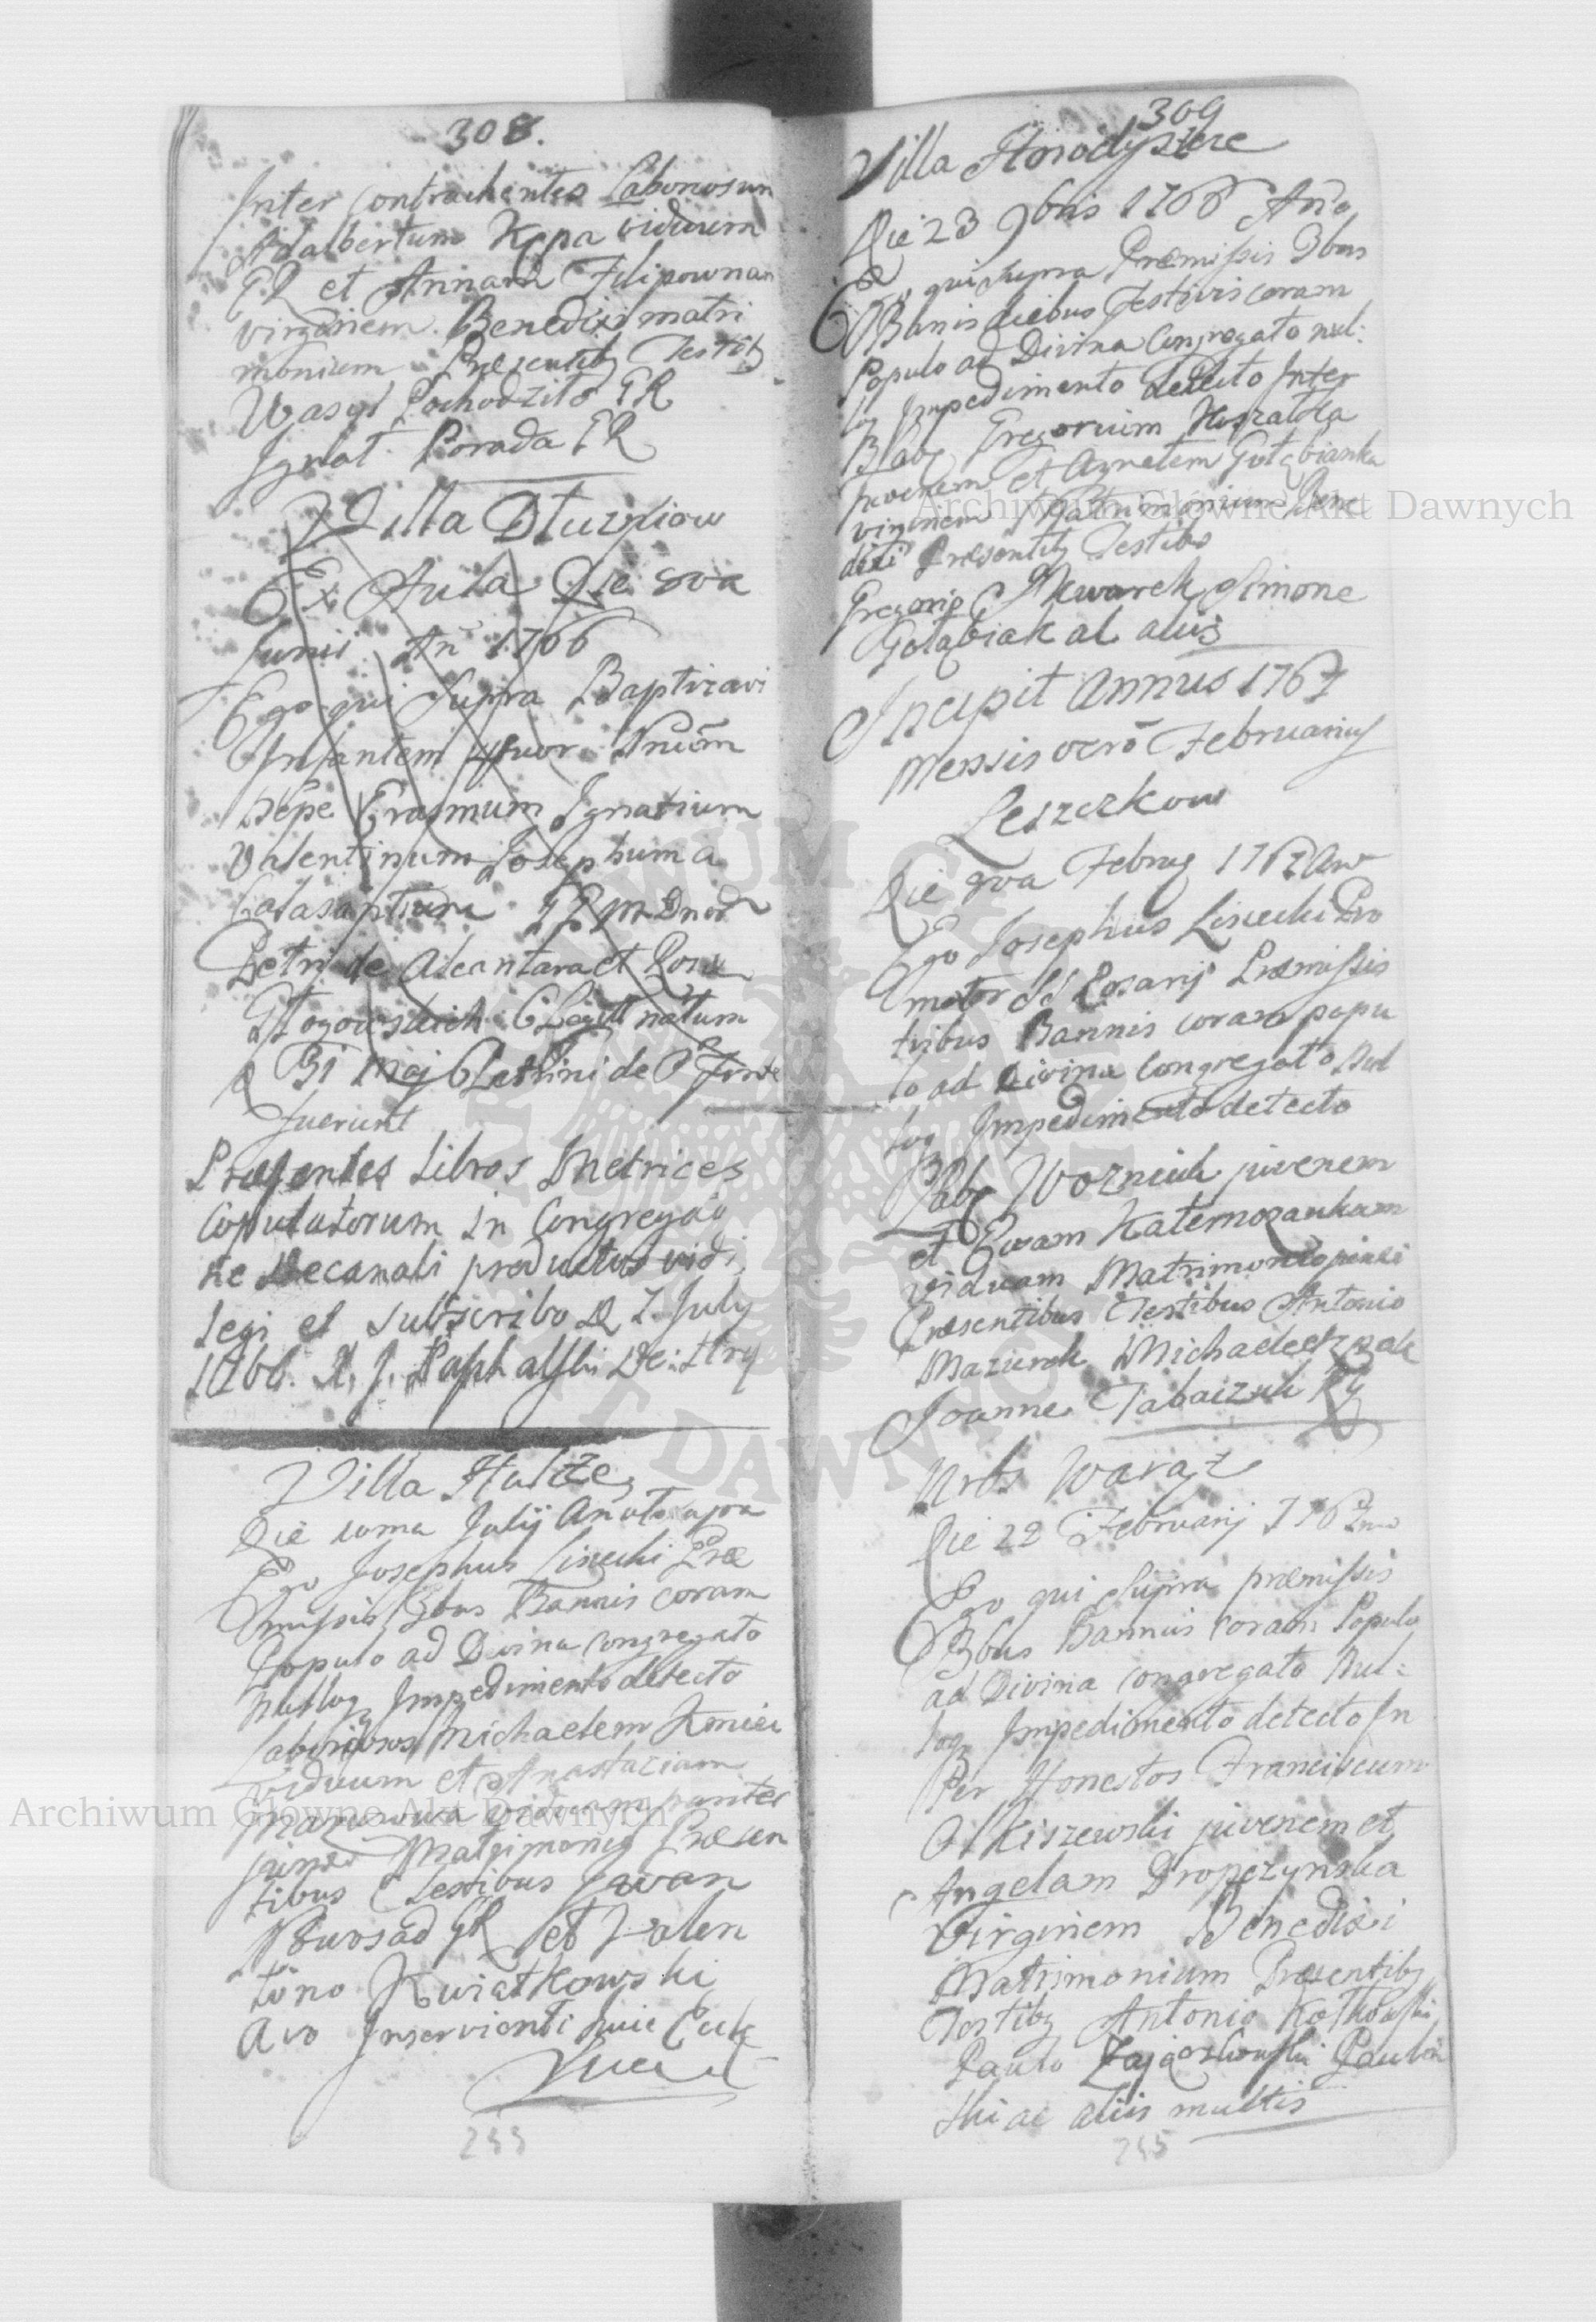 308.
Inter Contrahentes Laboriosum
Adalbertum Kępa viduum
GR et Annam Filipownam
virginem Benedixi matri
monium Præsentibq Testibq
Wasyl Pochodziło GR
Ignat Porada GR
Villa Dłużniow
Ex Aula Die 8va
Junii An 1766
Ego qui Supra Baptizavi
Infantem Nnum
Nepe Erasmum Ignatium
Valentinum Josephum a
Calasantium PP M Dnod
Petri de Alcantara et Rosa
Głogowskich CLegitt natum
D 31 Maj Pattrini de S Fonte
fuerunt
Præsentes Libros Metrices
Copulatorum in Congregaō
ne Decanali productos vidi
legi et subscribo D 7 July
1766.
Villa Hulcze
Die Juliÿ Ano ut supra
Ego Josephus Lisiecki Præ
missis 3bus Bannis coram
Populo ad Divina congregato
nulloq Impedimento detecto
Laboriosos Michaelem Kmiec
viduum et Anastaziam
viduam pariter
junxi Matrimonio Præsen
tibus Testibus Iwan
GR et Valen
tino Kwiatkowski
avo Inservienti huic Eccle
235
309
Villa Horodyszcze
Die 23 9bris 1766 Ano
Ego qui Supra Præmissis 3bus
Banis diebus Festivis coram
Populo ad Divina Congregato nul:
loq Impedimento detecto Inter
Llabq Gregorium
juvenem et Agnetem Gołębianka
virginem Matrimonium Bene
dixi Præsentibq Testibus
Gregorio Skwarek Simone
Gołąbiak al aliis
Incipit Annus 1767
Mensis vero Februarius
Leszczkow
Die 8va Februq 1767 Aw
Ego Josephus Lisiecki Pro
motor SS Rosarij Præmissis
tribus Bannis coram popu
lo ad Divina Congregato Nul
loq Impedimento detecto
Llabq Wozniak juvenem
et Ewam
viduam Matrimonio junxi
Præsentibus Testibus Antonio
Mazurek Michaele
Joanne Tabaczuk RG
Urbs Waręż
Die 22 Februarij 1767mo
Ego qui Supra præmissis
3bus Bannis Coram Populo
ad Divina congregato Nul:
loq Impedimento detecto In
ter Honestos Franciscum
Olkiszewski juvenem et
Angelam Dropczynska
Virginem Benedixi
Matrimonium Præsentibq
Testibq Antonio Kotkowski
Paulo Zajączkowski Paulin
ski ac aliis multis
235
Archiwum Główne Akt Dawnych
Archiwum Główne Akt Dawnych